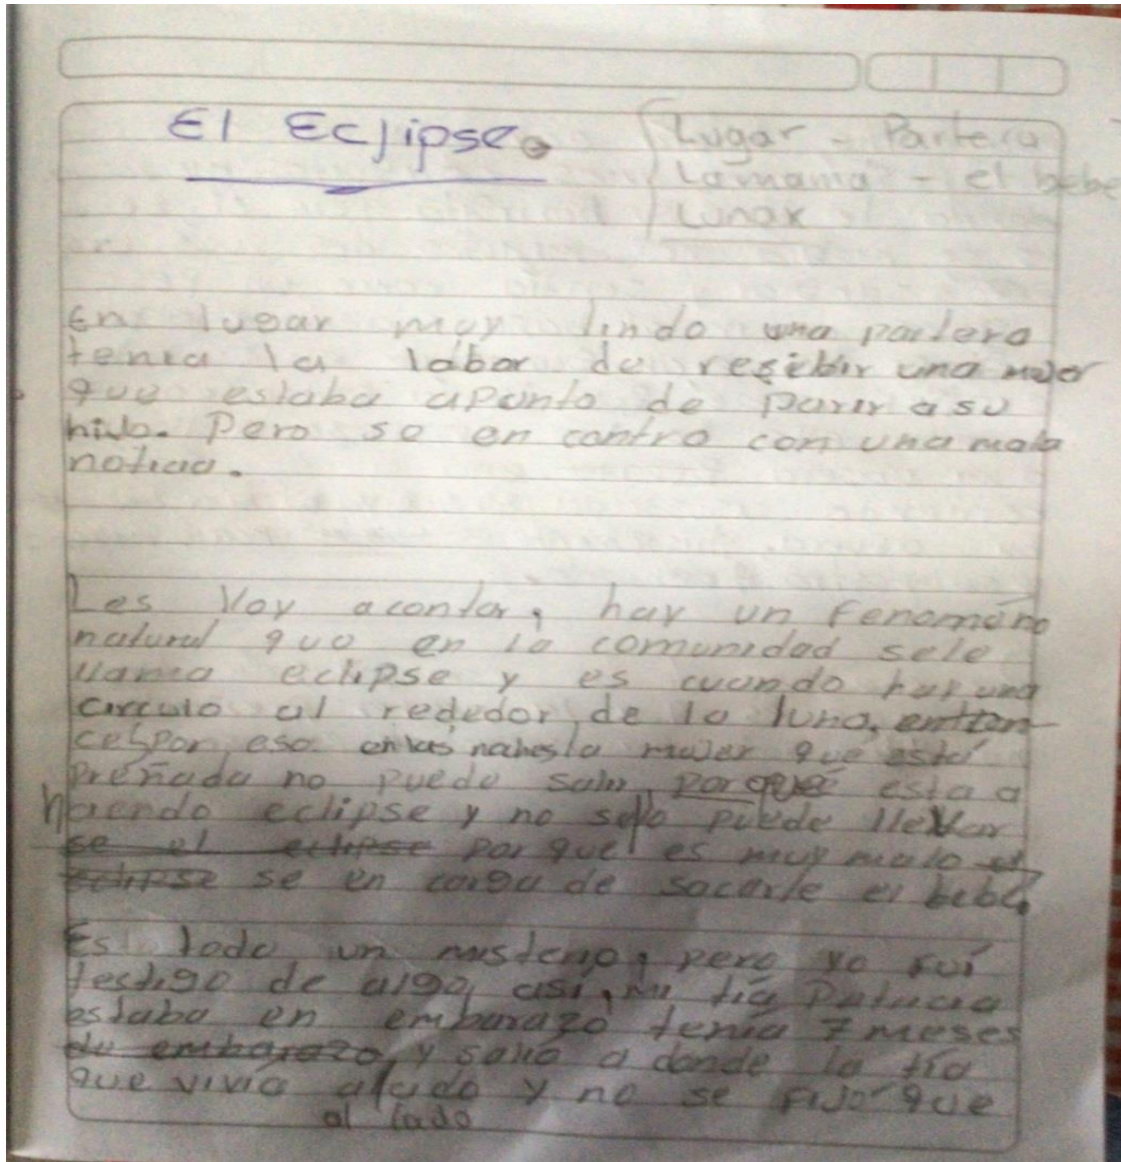 El Eclipse.
Lugar - Partera
La mama - el bebe
Lunar
En lugar muy lindo una partera
tenia la labor de resibir una mujer
que estaba apunto de parir a su
hijo. Pero se en contro con una mala
noticia.
Les Voy acontar, hay un fenoméno
natural que en la comunidad sele
llama eclipse y es cuando hay una
circulo al rededor de la luna, enton
ces por eso en las noches la mujer que está
preñada no puede salir, porque esta a
haciendo eclipse y no se lo puede llevar
se el eclipse por que es muy malo el
eclipse se en carga de sacarle el bebé.
Es todo un misterio, pero yo fuí
testigo de algo así, mi tía Patricia
estaba en embarazo tenia 7 meses
de embarazo y salio a donde la tía
que vivía alado y no se fijó que
al lado